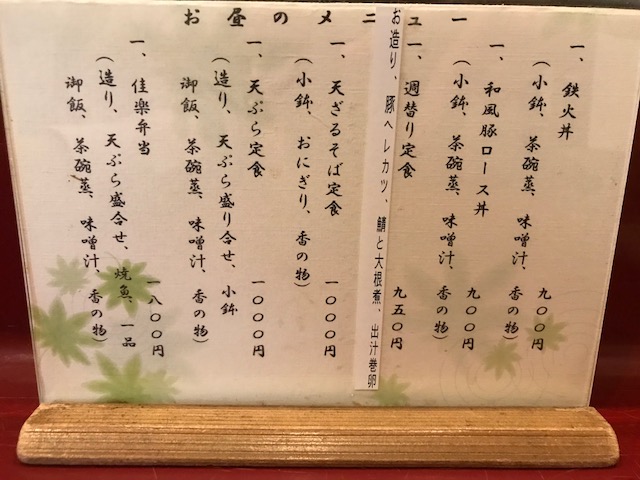 お昼のメニュー
一、鉄火丼
（小鉢、茶碗蒸、味噌汁、香の物）
九〇〇円
一、和風豚ロース丼
（小鉢、茶碗蒸、味噌汁、香の物）
九〇〇円
一、週替り定食
九五〇円
お造り、豚ヘレカツ、鯖と大根煮、出汁巻卵
一、天ざるそば定食
（小鉢、おにぎり、香の物）
一〇〇〇円
一、天ぷら定食
（造り、天ぷら盛り合せ、小鉢
御飯、茶碗蒸、味噌汁、香の物）
一〇〇〇円
一、佳楽弁当
（造り、天ぷら盛合せ、焼魚、一品
御飯、茶碗蒸、味噌汁、香の物）
一八〇〇円